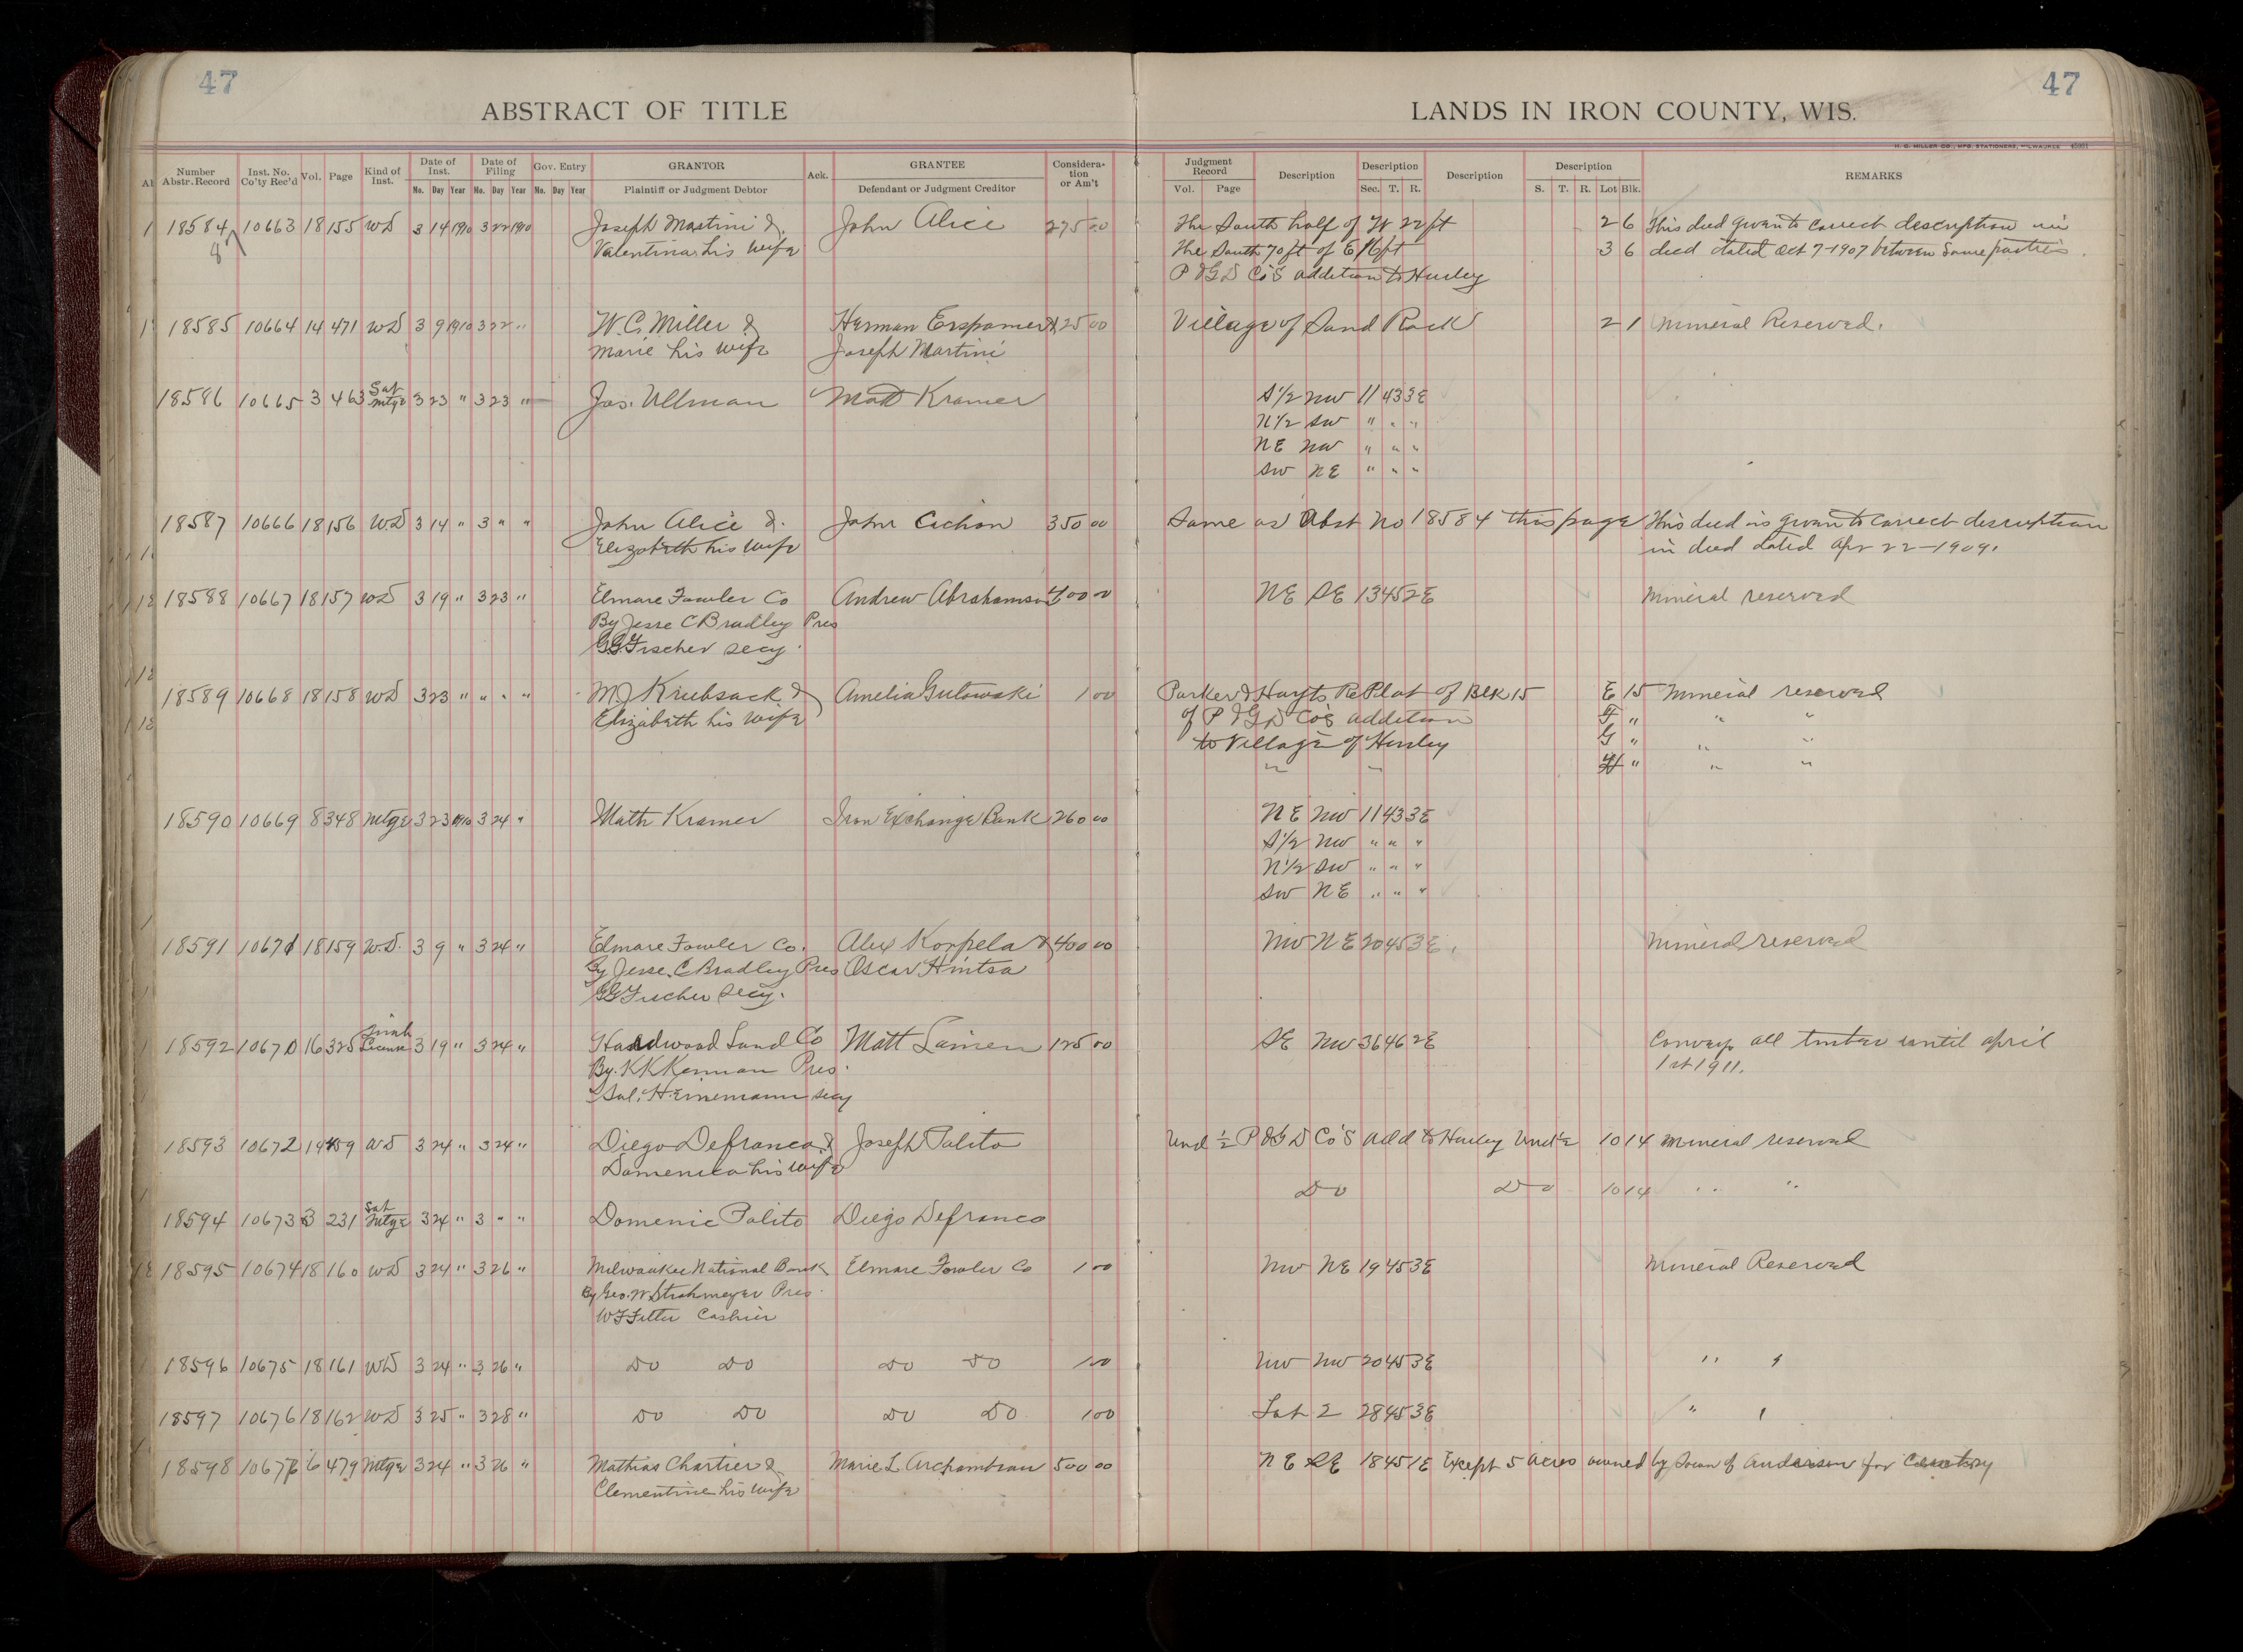 47
47
ABSTRACT OF TITLE
LANDS IN IRON COUNTY, WIS.
H. C. MILLER CO., MFG. STATIONERS, MILWAUKEE
Number Abstr. Record | Inst. No. Co'ty Rec'd | Vol. | Page | Kind of Inst. | Date of Inst. No. Day Year | Date of Filing No. Day Year | Gov. Entry No. Day Year | GRANTOR Plaintiff or Judgment Debtor | Ack. | GRANTEE Defendant or Judgment Creditor | Consideration or Am't | Judgment Record Vol. Page | Description | Description Sec. T. R. | Description | Description S. T. R. Lot Blk. | REMARKS
18584 10663 18 155 WD 3 14 1910 3 22 1910 Joseph Martini & John Alice 275 00 The South half of W 22 ft 2 6 This deed given to correct description in
8 Valentina his wife The South 70 ft of E 16 ft 3 6 deed dated Oct 7-1907 between same parties
P & G D Co's addition to Hurley
18585 10664 14 471 WD 3 9 1910 3 22 " W. C. Miller & Herman Erspamer & 25 00 Village of Sand Rock 2 1 Mineral Reserved.
Marie his wife Joseph Martini
18586 10665 3 463 Sat Mtge 3 23 " 3 23 " Jas. Ullman Matt Kramer S 1/2 NW 11 43 3E
N 1/2 SW " " "
NE NW " " "
SW NE " " "
18587 10666 18 156 WD 3 14 " 3 " " John Alice & John Cichon 350 00 Same as Abst No 18584 this page This deed is given to correct description
Elizabeth his wife in deed dated Apr 22-1909.
18588 10667 18 157 WD 3 19 " 3 23 " Elmore Fowler Co Andrew Abrahamson 400 00 NE SE 13 45 2E Mineral reserved
By Jesse C Bradley Pres
G.G. Fischer Secy.
18589 10668 18 158 WD 3 23 " " " " M J Kriubsack & Amelia Gutowski 1 00 Parker & Hoyts RePlat of Blk 15 E 15 Mineral reserved
Elizabeth his wife of P & G D Co's addition F " " "
to Village of Hurley G " " "
" " H " " "
18590 10669 8 348 Mtge 3 23 1910 3 24 " Math Kramer Iron Exchange Bank 260 00 NE NW 11 43 3E
S 1/2 NW " " "
N 1/2 SW " " "
SW NE " " "
18591 10671 18 159 W.D. 3 9 " 3 24 " Elmore Fowler Co. Alex Korpela & 400 00 NW NE 20 45 3E Mineral reserved
By Jesse C Bradley Pres Oscar Hintsa
GG Fischer Secy.
18592 10670 16 325 License 3 19 " 3 24 " Hardwood Land Co Matt Lainen 125 00 SE NW 36 46 2E Conveys all timber until April
By K K Kennan Pres. 1st 1911.
" Sol. Heinemann Secy
18593 10672 19 459 WD 3 24 " 3 24 " Diego Defranco & Joseph Palito Und 1/2 P & G D Co's Add to Hurley Und 1/2 10 14 Mineral reserved
Domenica his wife
Do Do 10 14 " "
18594 10673 3 231 Sat Mtge 3 24 " 3 " " Domenic Palito Diego Defranco
18595 10674 18 160 WD 3 24 " 3 26 " Milwaukee National Bank Elmore Fowler Co 1 00 NW NE 19 45 3E Mineral Reserved
By Geo. W Strohmeyer Pres.
W F Filter Cashier
18596 10675 18 161 WD 3 24 " 3 26 " Do Do Do Do 1 00 NW NW 20 45 3E " "
18597 10676 18 162 WD 3 25 " 3 28 " Do Do Do Do 1 00 Lot 2 28 45 3E " "
18598 10677 6 479 Mtge 3 24 " 3 26 " Mathias Chartier & Marie L Archambeau 500 00 NE SE 18 45 1E Except 5 acres owned by Town of Anderson for Cemetery
Clementine his wife